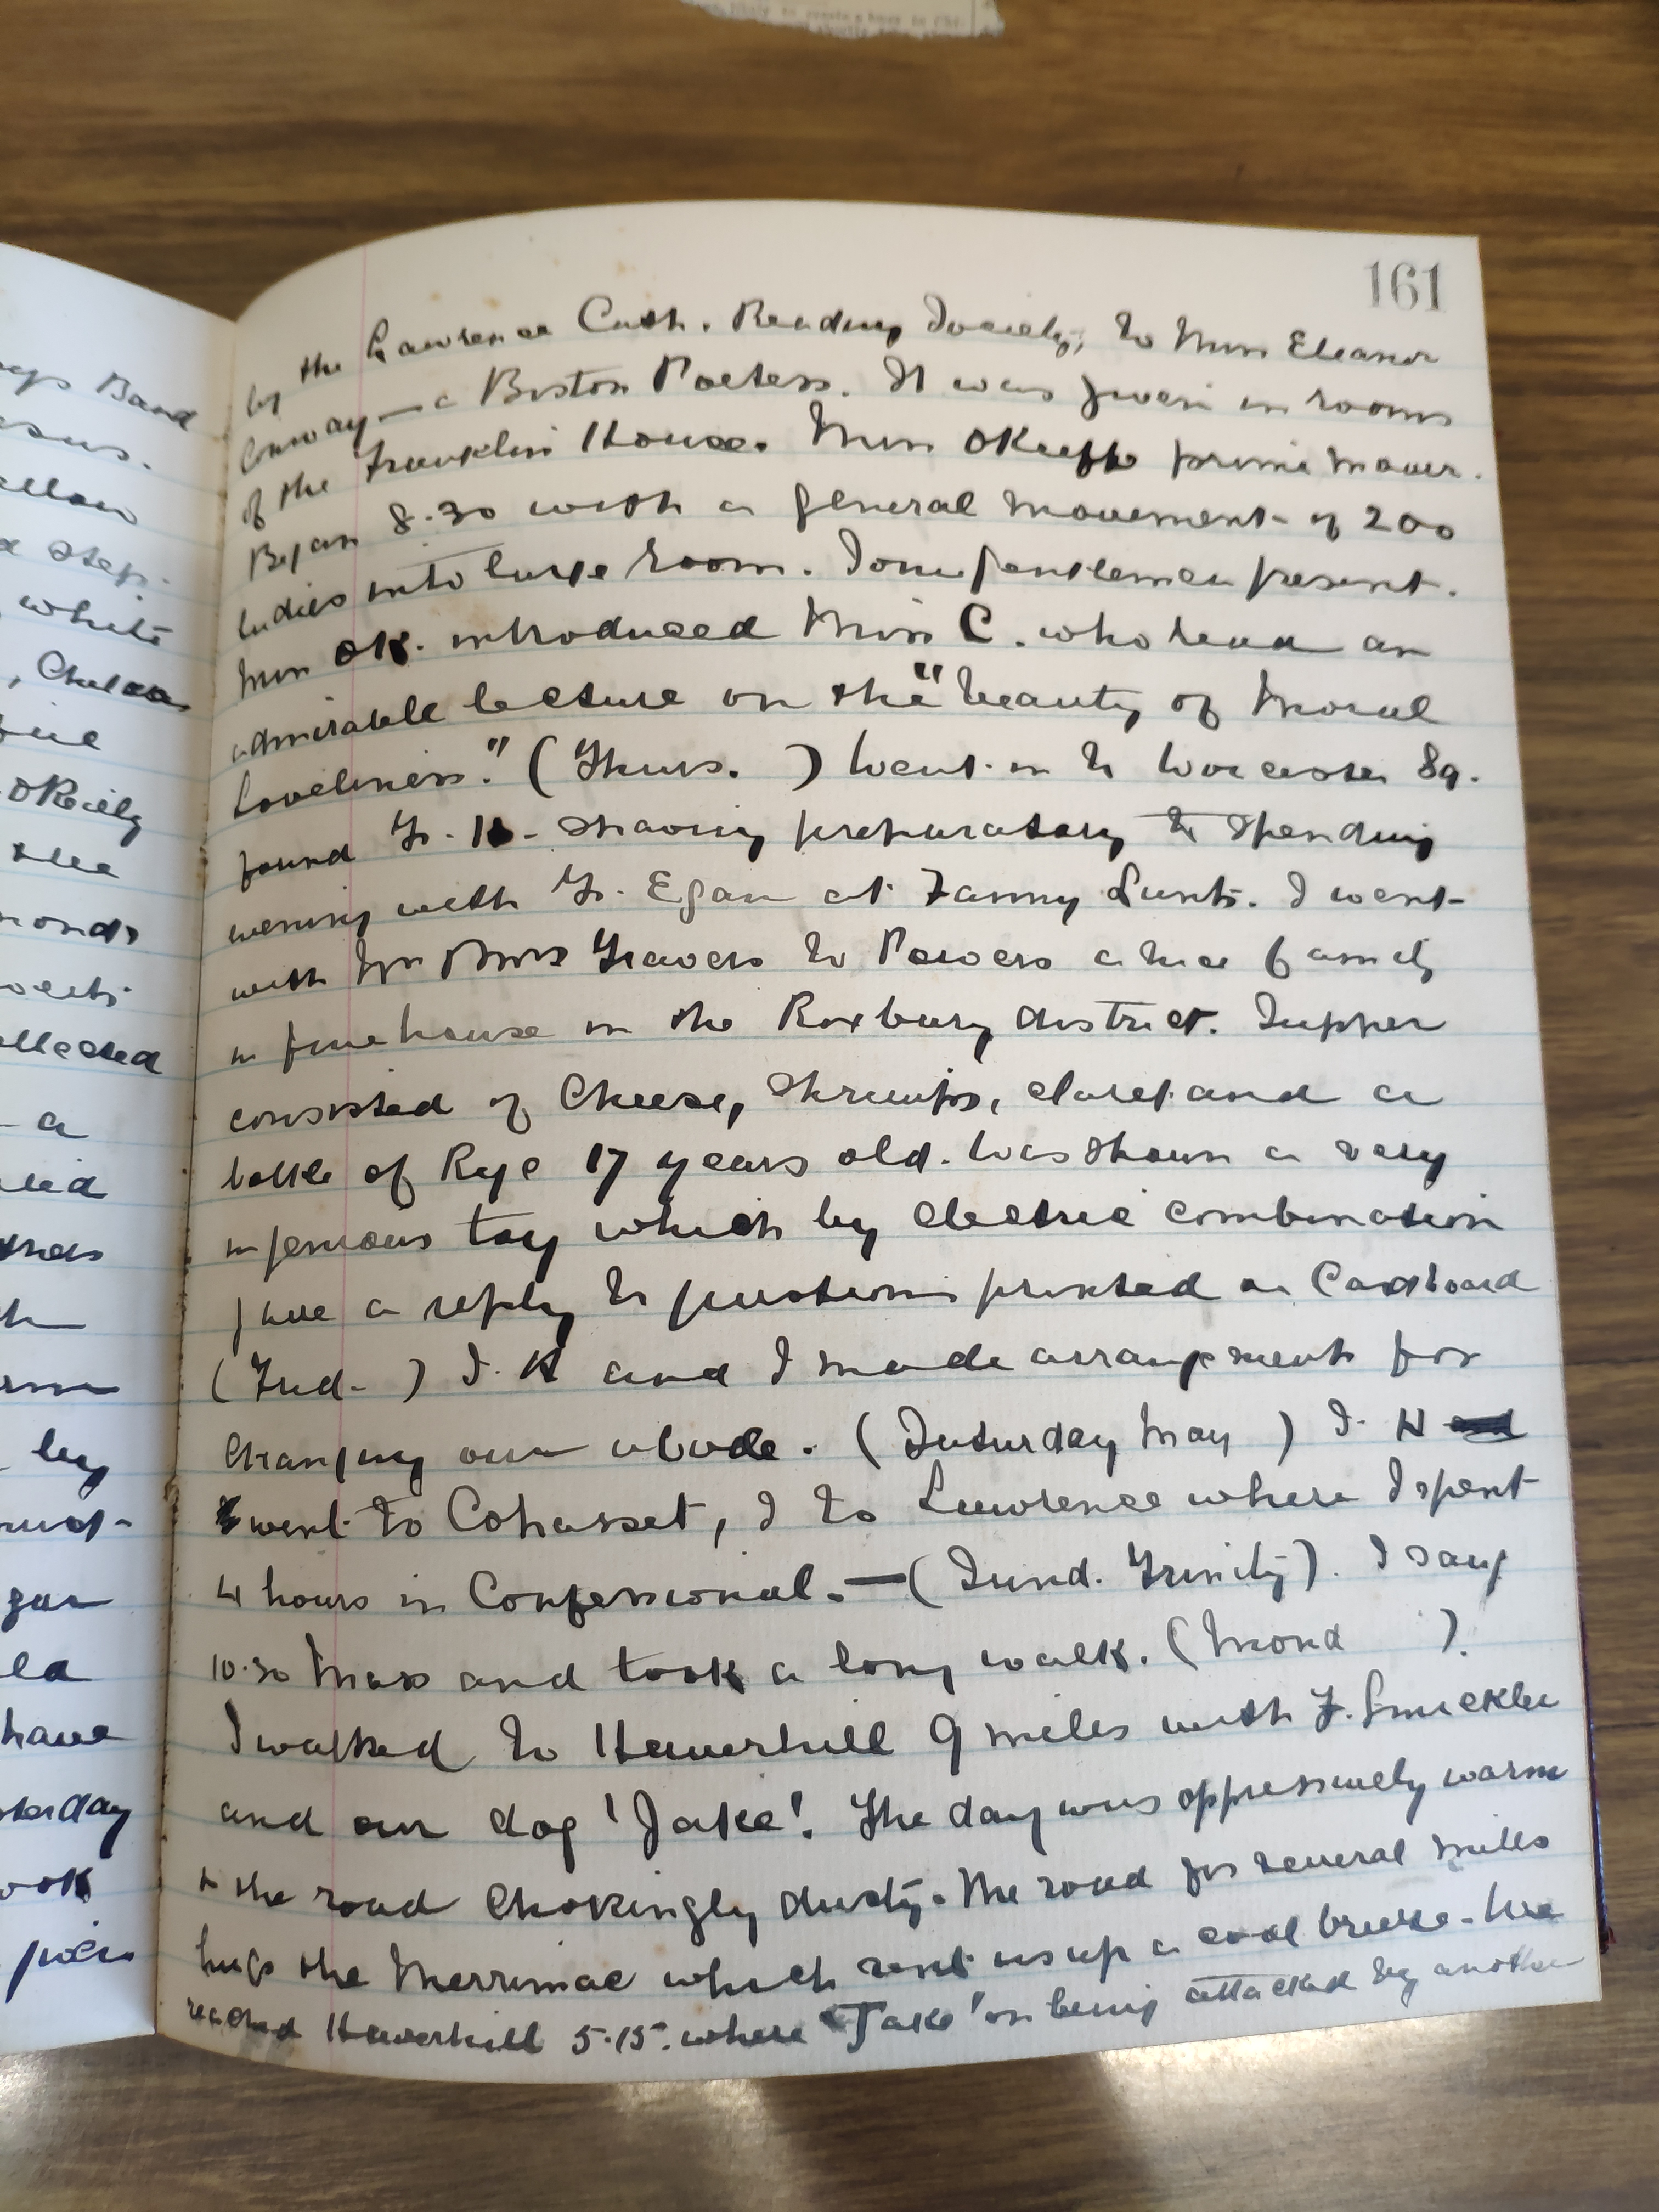 161
by the Lawrence Cath. Reading Society, to Miss Eleanor
Conway — a Boston Poetess. It was given in rooms
of the Franklin House. Miss OKeeffe prime mover.
Began 8.30 with a general movement of 200
ladies into large room. Some gentlemen present.
Miss OK. introduced Miss C. who read an
admirable lecture on the "beauty of Moral
Loveliness." (Thurs. ) Went in to Worcester Sq.
found shaving preparatory to spending
evening with Egan at Fanny I went
with Travers to Powers a nice family
in fine house in the Roxbury district. Supper
consisted of Cheese, Shrimps, claret and a
bottle of Rye 17 years old. Was shown a very
ingenious toy which by electric combination
gave a reply to questions printed on Cardboard
(Frid- ) and I made arrangements for
changing our abode. (Saturday May )
went to Cohasset, I to Lawrence where I spent
4 hours in Confessional. — (Sund. Trinity). I sang
10.30 Mass and took a long walk. (Mond ).
I walked to Haverhill 9 miles with F.
and our dog 'Jake'. The day was oppressively warm
+ the road chokingly dusty. The road for several miles
hugs the Merrimac which sent us up a cool breeze. We
reached Haverhill 5.15. where 'Jake' on being attacked by another
Band
white
Chelsea
OReilly
the
a
by
have